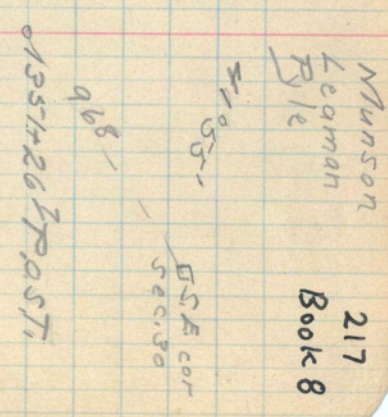 217
Book 8
Munson
Leaman
Pyle
S.E. cor
Sec. 30
968
1351+26 P.O.S.T.